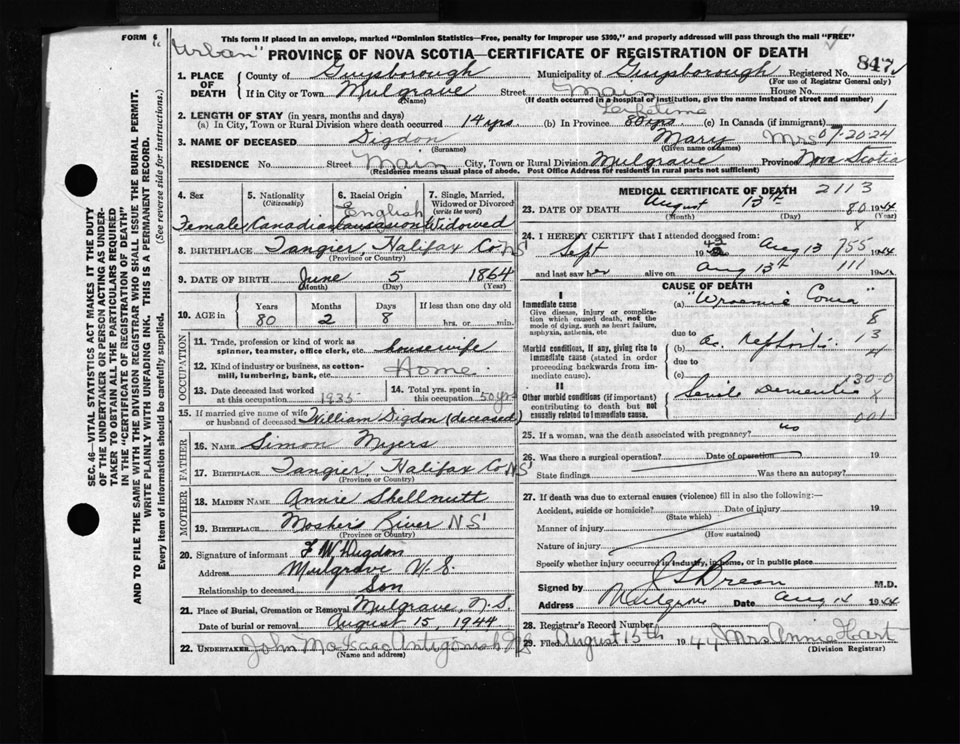 FORM 6
This form if placed in an envelope, marked "Dominion Statistics—Free, penalty for improper use $300," and properly addressed will pass through the mail "FREE"
"Urban" PROVINCE OF NOVA SCOTIA—CERTIFICATE OF REGISTRATION OF DEATH
847
1. PLACE OF DEATH County of Guysborough Municipality of Guysborough Registered No.
(For use of Registrar General only)
If in City or Town Mulgrave Street Main House No.
(Name) (If death occurred in a hospital or institution, give the name instead of street and number)
2. LENGTH OF STAY (in years, months and days) Lifetime 1
(a) In City, Town or Rural Division where death occurred 14 yrs (b) In Province 80 yrs (c) In Canada (if immigrant)
3. NAME OF DECEASED Digdon Mary Mrs 07-20-24
(Surname) (Given name or names)
RESIDENCE No. Street Main City, Town or Rural Division Mulgrave Province Nova Scotia
(Residence means usual place of abode. Post Office Address for residents in rural parts not sufficient)
4. Sex 5. Nationality (Citizenship) 6. Racial Origin 7. Single, Married, Widowed or Divorced (write the word)
English
Female Canadian Widowed
8. BIRTHPLACE Tangier, Halifax Co NS
(Province or Country)
9. DATE OF BIRTH June 5 1864
(Month) (Day) (Year)
10. AGE in Years Months Days If less than one day old
80 2 8 hrs. or min.
OCCUPATION
11. Trade, profession or kind of work as spinner, teamster, office clerk, etc. housewife
12. Kind of industry or business, as cotton-mill, lumbering, bank, etc. Home
13. Date deceased last worked at this occupation 1935 14. Total yrs. spent in this occupation 50 yrs
15. If married give name of wife or husband of deceased William Digdon (deceased)
FATHER
16. NAME Simon Myers
17. BIRTHPLACE Tangier, Halifax Co NS
(Province or Country)
MOTHER
18. MAIDEN NAME Annie Shellnutt
19. BIRTHPLACE Mosher's River NS
(Province or Country)
20. Signature of informant F W Digdon
Address Mulgrave N.S.
Relationship to deceased Son
21. Place of Burial, Cremation or Removal Mulgrave, N.S.
Date of burial or removal August 15, 1944
22. UNDERTAKER John MacIsaac Antigonish NS
(Name and address)
MEDICAL CERTIFICATE OF DEATH 2113
23. DATE OF DEATH August 13th 80 1944
(Month) (Day) (Year)
24. I HEREBY CERTIFY that I attended deceased from:
Sept 1942 Aug 13 755 1944
and last saw her alive on Aug 13th 111 1944
CAUSE OF DEATH
I
Immediate cause (a) "Uraemic Coma"
Give disease, injury or complication which caused death, not the mode of dying, such as heart failure, asphyxia, asthenia, etc.
8
due to 13
Morbid conditions, if any, giving rise to immediate cause (stated in order proceeding backwards from immediate cause). (b) ac. Nephritis
due to
(c) 130-0
II
Other morbid conditions (if important) contributing to death but not causally related to immediate cause. Senile Dementia
001
25. If a woman, was the death associated with pregnancy? no
26. Was there a surgical operation? Date of operation 19
State findings Was there an autopsy?
27. If death was due to external causes (violence) fill in also the following:—
Accident, suicide or homicide? Date of injury 19
(State which)
Manner of injury
(How sustained)
Nature of injury
Specify whether injury occurred in industry, in home, or in public place
Signed by M.D.
Address Mulgrave Date Aug 14 1944
28. Registrar's Record Number
29. Filed August 15th 1944 Mrs Annie Hart
(Division Registrar)
SEC. 46—VITAL STATISTICS ACT MAKES IT THE DUTY
OF THE UNDERTAKER OR PERSON ACTING AS UNDER-
TAKER TO OBTAIN ALL THE PARTICULARS REQUIRED
IN THE "CERTIFICATE OF REGISTRATION OF DEATH"
AND TO FILE THE SAME WITH THE DIVISION REGISTRAR WHO SHALL ISSUE THE BURIAL PERMIT.
WRITE PLAINLY WITH UNFADING INK. THIS IS A PERMANENT RECORD.
Every item of information should be carefully supplied. (See reverse side for instructions.)